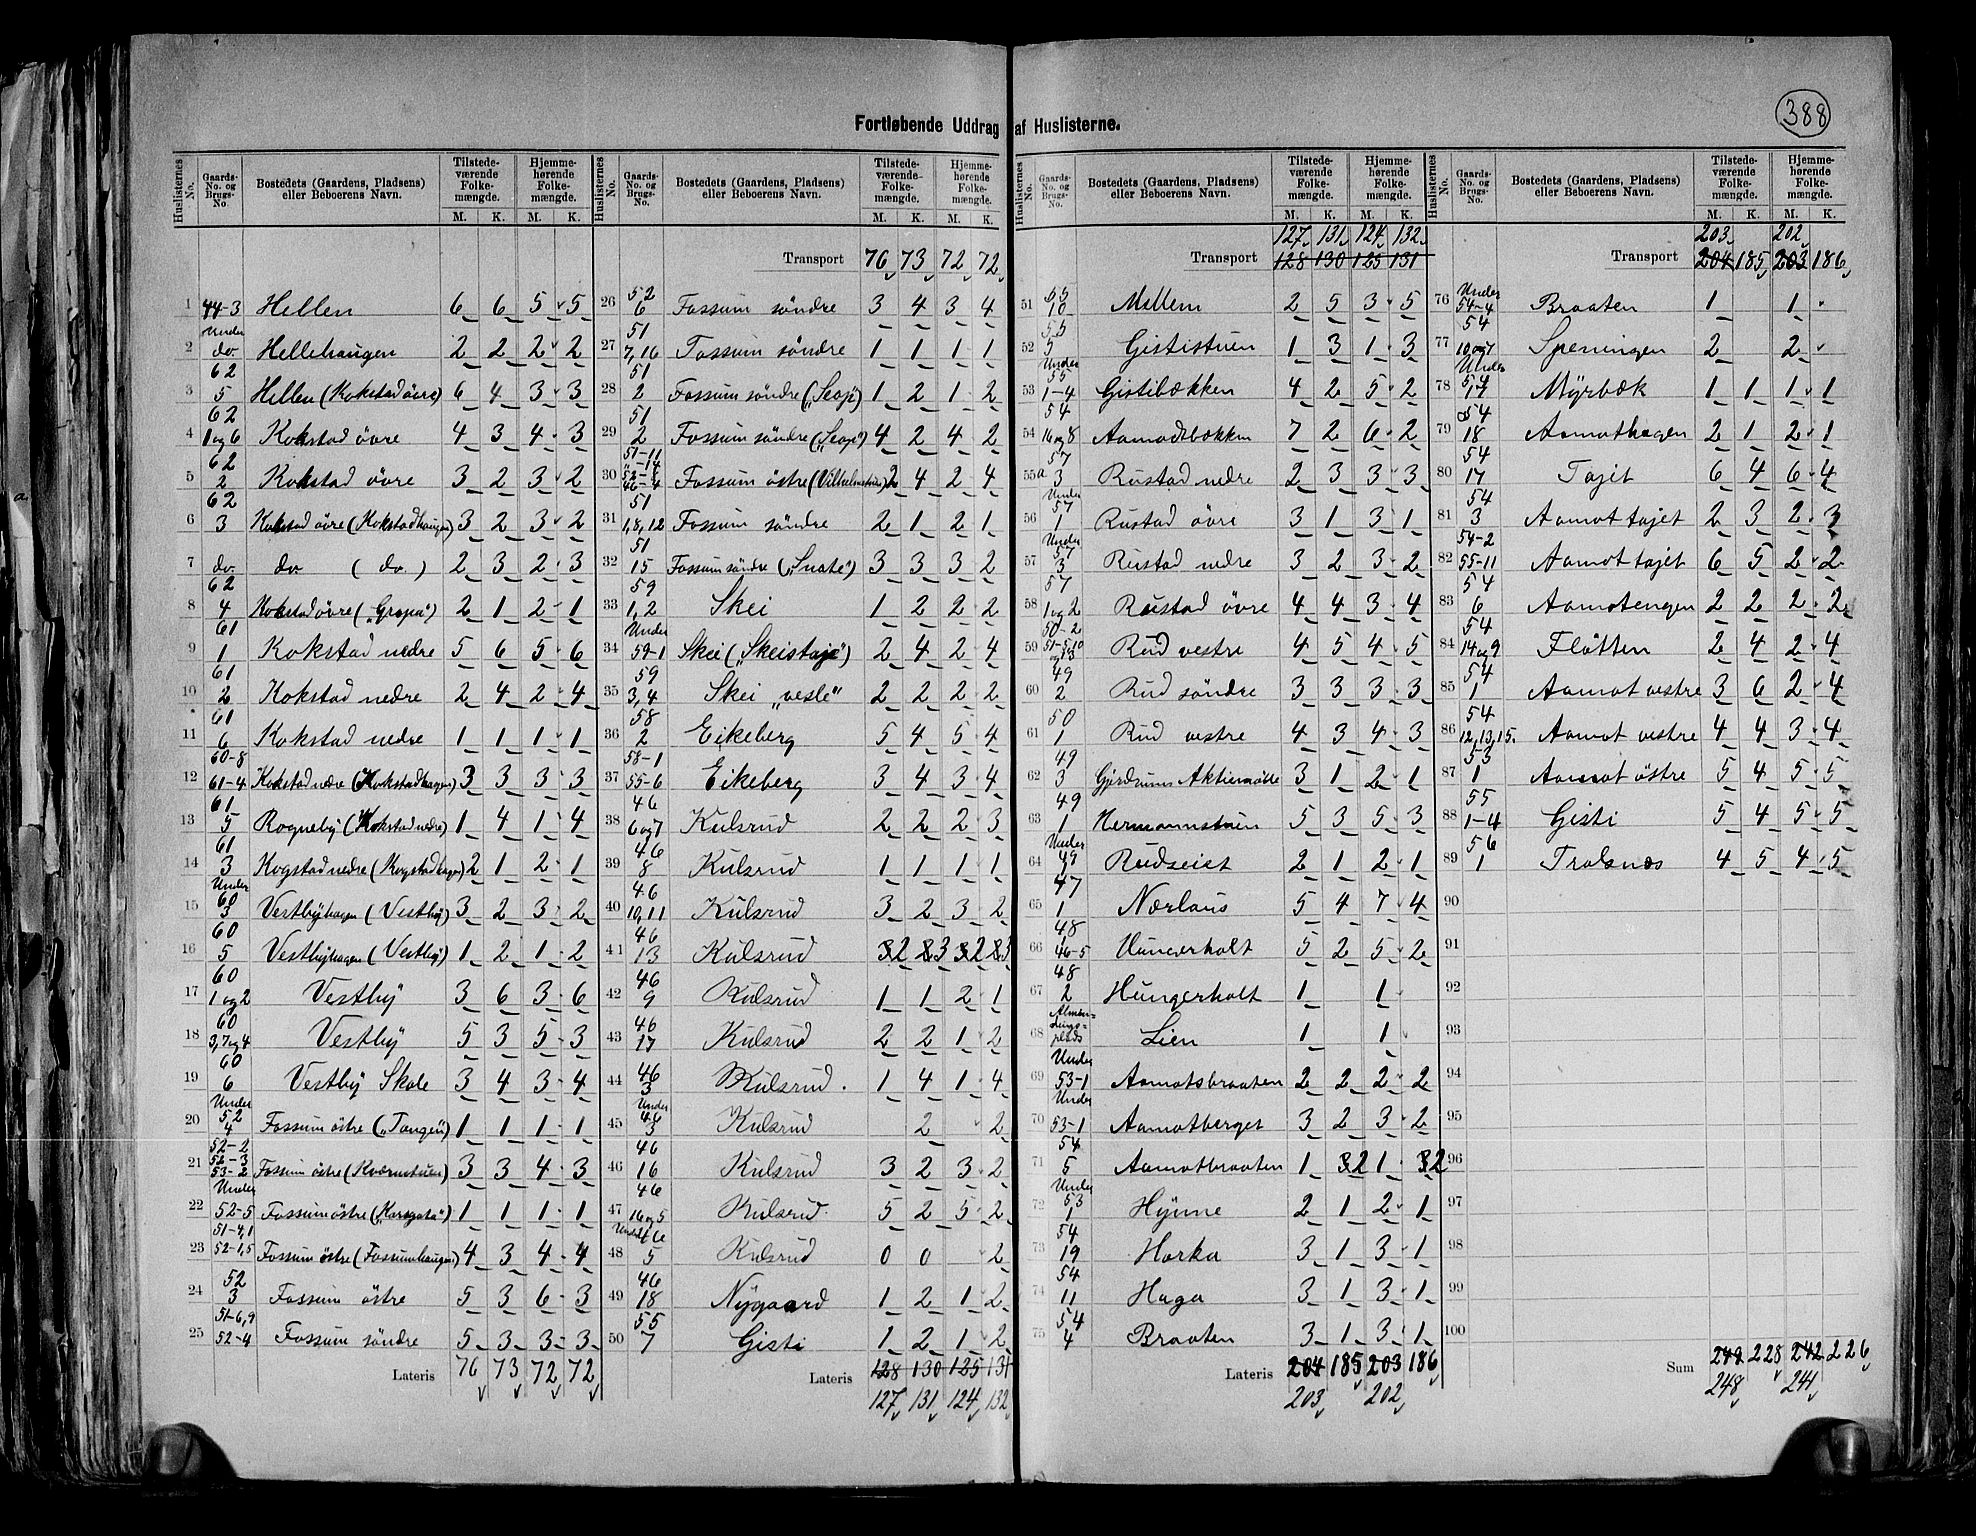 388
Fortløbende Uddrag af Huslisterne.
Huslisternes No. | Gaards-No. og Brugs-No. | Bostedets (Gaardens, Pladsens) eller Beboerens Navn. | Tilstedeværende Folkemængde. M. K. | Hjemmehørende Folkemængde. M. K.
1 44-3 Hellen 6 6 5 5
2 Under do. Hellehaugen 2 2 2 2
3 62 5 Hellen (Kokstad övre) 6 4 3 3
4 62 1 og 6 Kokstad övre 4 3 4 3
5 62 2 Kokstad övre 3 2 3 2
6 62 3 Kokstad övre (Kokstadhaugen) 3 2 3 2
7 do. do (do.) 2 3 2 3
8 62 4 Kokstad övre („Gropa“) 2 1 2 1
9 61 1 Kokstad nedre 5 6 5 6
10 61 2 Kokstad nedre 2 4 2 4
11 61 6 Kokstad nedre 1 1 1 1
12 60-8 61-4 Kokstad nedre (Kokstadhagen) 3 3 3 3
13 61 5 Rogneby (Kokstad nedre) 1 4 1 4
14 61 3 Kogstad nedre (Kogstadhagen) 2 1 2 1
15 Under 60 3 Vestbyhagen (Vestby) 3 2 3 2
16 60 5 Vestbyhagen (Vestby) 1 2 1 2
17 60 1 og 2 Vestby 3 6 3 6
18 60 3,7 og 4 Vestby 5 3 5 3
19 60 6 Vestby Skole 3 4 3 4
20 Under 52 4 Fossum östre („Tangen“) 1 1 1 1
21 52-2 52-3 53-2 Fossum östre (Kværnstuen) 3 3 4 3
22 Under 52-5 Fossum östre („Korsgata“) 1 1 1 1
23 51-4,1 52-1,5 Fossum östre (Fossumhaugen) 4 3 4 4
24 52 3 Fossum östre 5 3 6 3
25 51-6,9 52-4 Fossum söndre 5 3 3 3
Lateris 76 73 72 72
Transport 76 73 72 72
26 52 6 Fossum söndre 3 4 3 4
27 51 7,16 Fossum söndre 1 1 1 1
28 51 2 Fossum söndre 1 2 1 2
29 51 2 Fossum söndre 4 2 4 2
30 51-11 „-14 52-8 46-4 Fossum östre 2 4 2 4
31 51 1,8,12 Fossum söndre 2 1 2 1
32 51 15 Fossum söndre 3 3 3 2
33 59 1,2 Skei 1 2 2 2
34 Under 59-1 Skei („Skeistaje“) 2 4 2 4
35 59 3,4 Skei „vesle“ 2 2 2 2
36 58 2 Eikeberg 5 4 5 4
37 58-1 55-6 Eikeberg 3 4 3 4
38 46 6 og 7 Kulsrud 2 2 2 3
39 46 8 Kulsrud 1 1 1 1
40 46 10,11 Kulsrud 3 2 3 2
41 46 13 Kulsrud 2 3 2 3
42 46 9 Kulsrud 1 1 2 1
43 46 17 Kulsrud 2 2 1 2
44 46 3 Kulsrud. 1 4 1 4
45 Under 46 3 Kulsrud 2 2
46 46 16 Kulsrud 3 2 3 2
47 46 16 og 5 Kulsrud. 5 2 5 2
48 Under 46 5 Kulsrud 0 0 2
49 46 18 Nygaard 1 2 1 2
50 55 7 Gisti 1 2 1 2
Lateris 128 130 125 131
127 131 124 132
127 131 124 132
Transport 128 130 125 131
51 55 10 Mellem 2 5 3 5
52 55 5 Gististuen 1 3 1 3
53 Under 55 1-4 Gistibækken 4 2 5 2
54 54 16 og 8 Aamodtbækken 7 2 6 2
55a 57 3 Rustad nedre 2 3 3 3
56 Under 57 1 Rustad övre 3 1 3 1
57 Under 57 3 Rustad nedre 3 2 3 2
58 57 1 og 2 Rustad övre 4 4 3 4
59 50-2 Rud vestre 4 5 4 5
60 49 2 Rud söndre 3 3 3 3
61 50 1 Rud vestre 4 3 4 3
62 49 3 Gjerdrums Aktiemölle 3 1 2 1
63 49 1 Hermannstuen 5 3 5 3
64 Under 49 Rudseiet 2 1 2 1
65 47 1 Nærlaus 5 4 7 4
66 48 1 46-5 Hungerholt 5 2 5 2
67 48 2 Hungerholt 1 1
68 Almenningsplads Lien 1 1
69 Under 53-1 Aamotsbraaten 2 2 2 2
70 Under 53-1 Aamotberget 3 2 3 2
71 54 5 Aamotbraaten 1 2 1 2
72 Under 53 1 Hynne 2 1 2 1
73 54 19 Horka 3 1 3 1
74 54 11 Haga 3 1 3 1
75 54 4 Braaten 3 1 3 1
Lateris 204 185 203 186
203 202
203 202
Transport 204 185 203 186
76 Under 54-4 Braaten 1 1
77 54 10 og 7 Speningen 2 2
78 Under 54 Myrbæk 1 1 1 1
79 54 18 Aamothagen 2 1 2 1
80 54 17 Tajet 6 4 6 4
81 54 3 Aamottajet 2 3 2 3
82 54-2 55-11 Aamottajet 6 5 2 2
83 54 6 Aamotengen 2 2 2 2
84 54 14 og 9 Flåtten 2 4 2 4
85 54 1 Aamot vestre 3 6 2 4
86 54 12,13,15. Aamot vestre 4 4 3 4
87 53 1 Aamot östre 5 4 5 5
88 55 1-4 Gisti 5 4 5 5
89 56 1 Tralsnæs 4 5 4 5
90
91
92
93
94
95
96
97
98
99
100
Sum 249 228 242 226
248 241